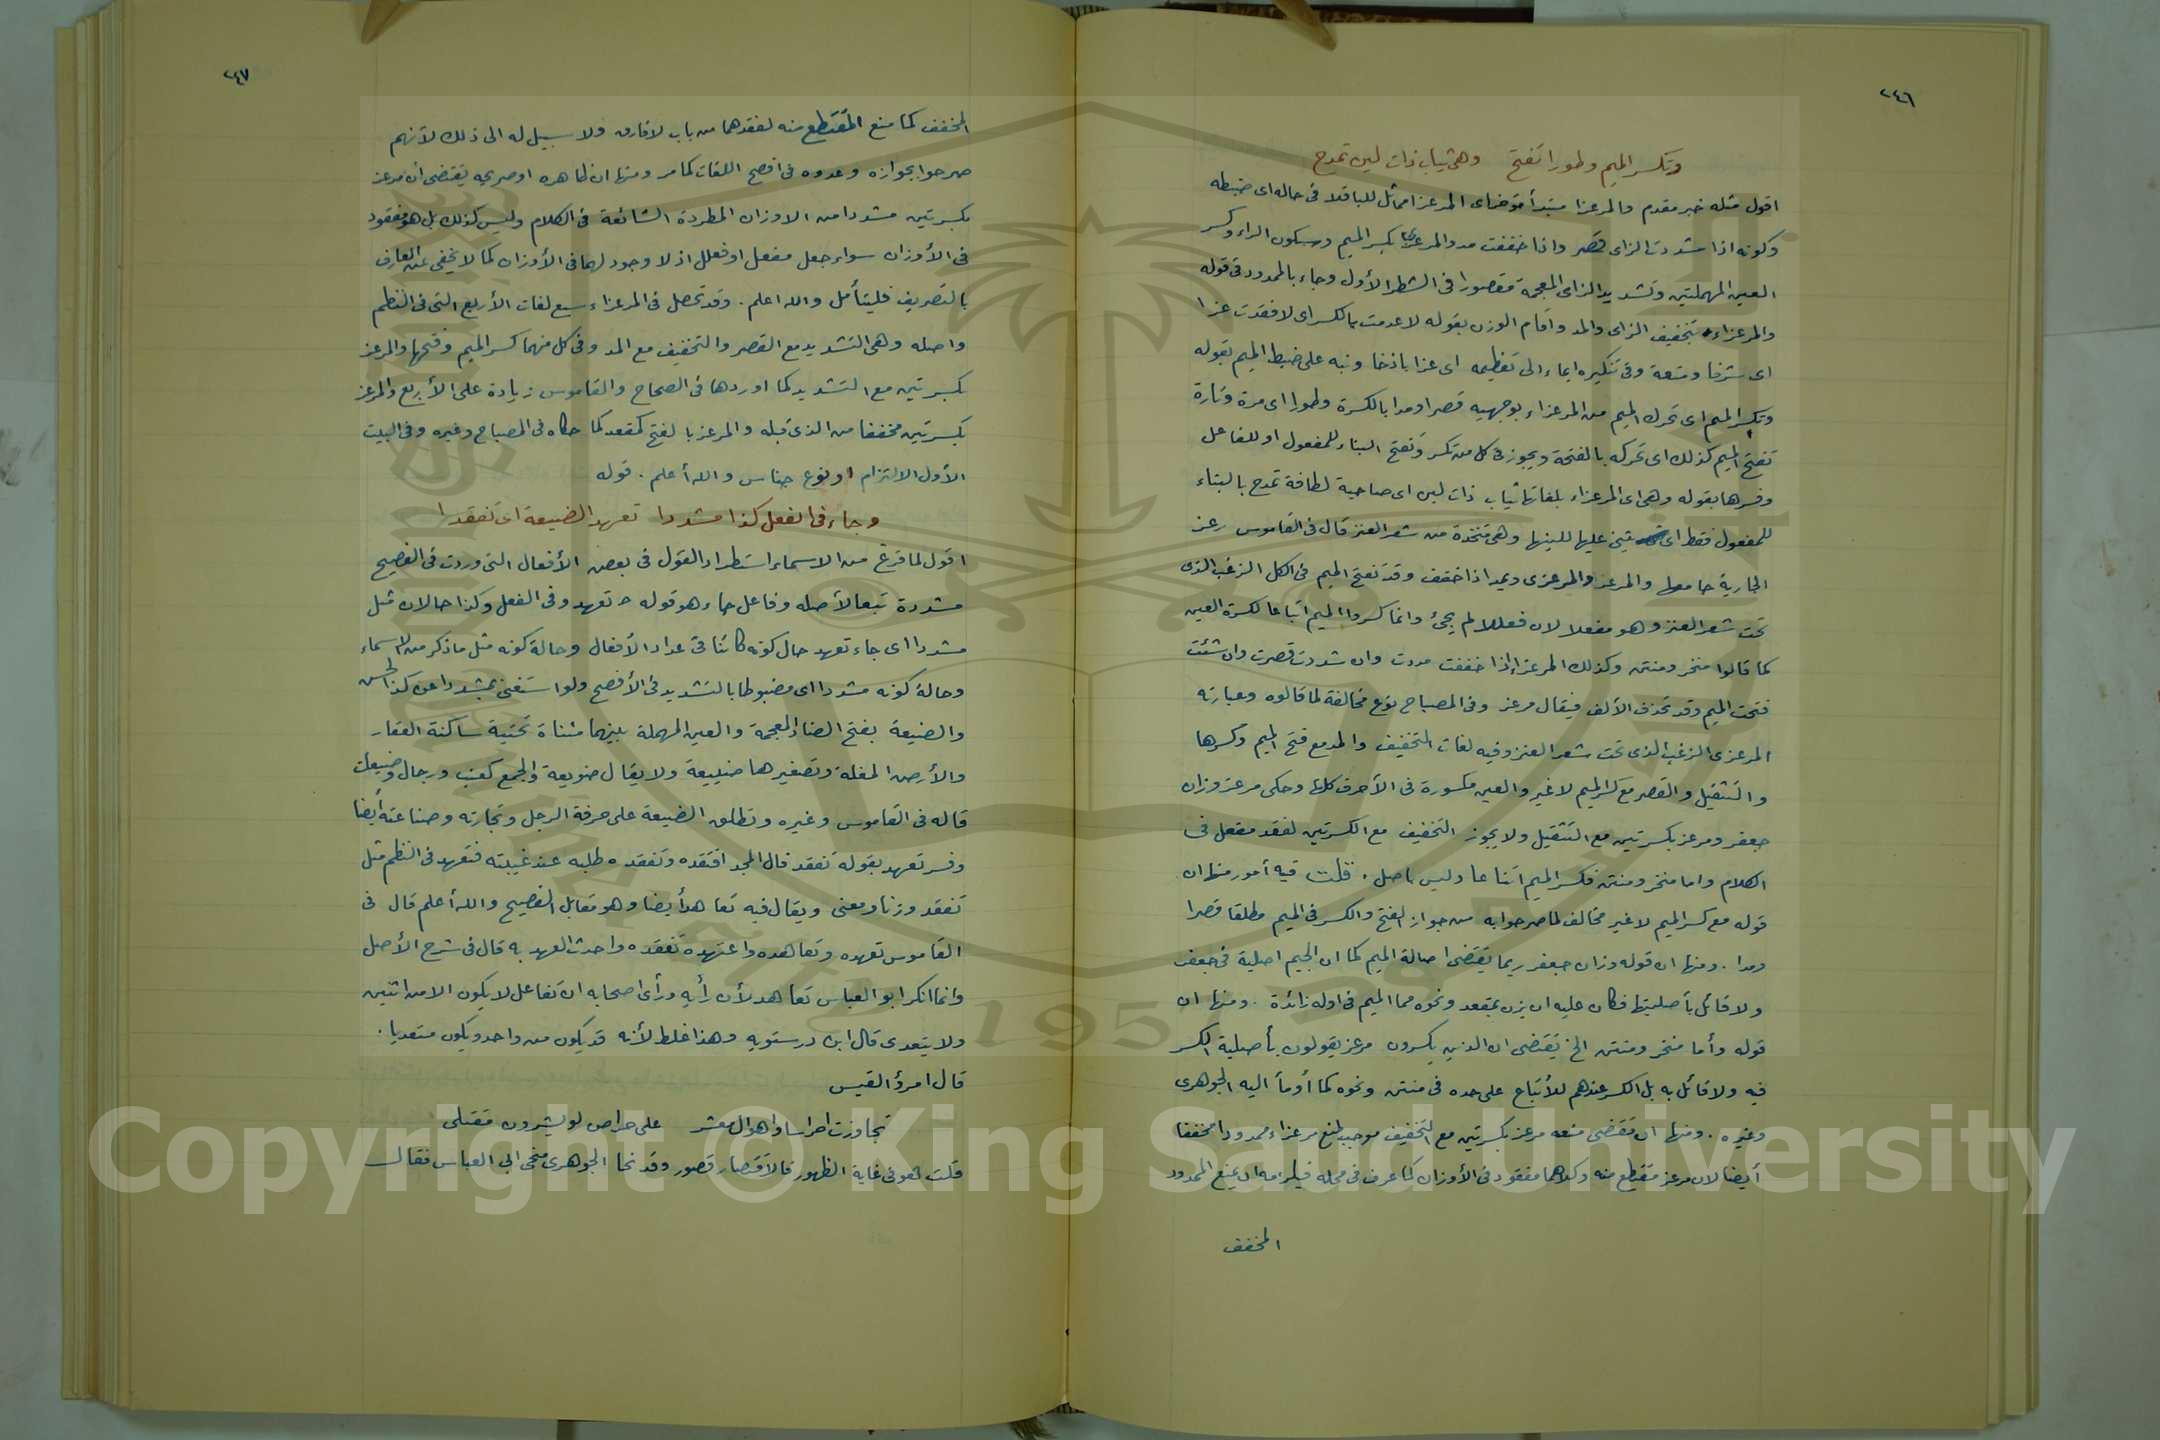 ٢٤٦
وتكسر الميم وطورا تفتح وهي ثياب ذات لين تمدح
اقول مثله خبر مقدم والمرعزا مبتدأ مؤخر اى المرعزا مماثل للباقلا في حاله اى ضبطه
وكونه اذا شددت الزاى قصر واذا خففت مد والمرعزى بكسر الميم وسكون الراء وكسر
العين المهملتين وتشديد الزاى المعجمة مقصورا في الشطر الأول وجاء بالممدود في قوله
والمرعزاء بتخفيف الزاى والمد وأقام الوزن بقوله لا عدمت بالكسر اى لا فقدت عزا
اى شرفا ومنعة وفي تنكيره ايماء الى تعظيمه اى عزا باذخا ونبه على ضبط الميم بقوله
وتكسر الميم اى تحرك الميم من المرعزاء بوجهيه قصرا ومدا بالكسرة وطورا اى مرة وتارة
تفتح الميم كذلك اى تحركه بالفتحة ويجوز في كل من تكسر وتفتح البناء للمفعول او للفاعل
وفسرها بقوله وهي اى المرعزاء بلغاتها ثياب ذات لين اى صاحبة لطافة تمدح بالبناء
للمفعول فقط اى يثنى عليها للينها وهي متخذة من شعر العنز قال في القاموس رعز
الجارية جامعها والمرعز والمرعزى ويمد اذا خفف وقد تفتح الميم في الكل الزغب الذى
تحت شعر العنز وهو مفعلا لان فعللا لم يجئ وانما كسروا الميم اتباعا لكسرة العين
كما قالوا منخر ومنتن وكذلك المرعزا إذا خففت مددت وان شددت قصرت وان شئت
فتحت الميم وقد تحذف الألف فيقال مرعز وفي المصباح نوع مخالفة لما قالوه وعبارته
المرعزى الزغب الذى تحت شعر العنز وفيه لغات التخفيف والمد مع فتح الميم وكسرها
والتثقيل والقصر مع كسر الميم لا غير والعين مكسورة في الأحرف كلها وحكى مرعز وزان
جعفر ومرعز بكسرتين مع التثقيل ولا يجوز التخفيف مع الكسرتين لفقد مفعل في
الكلام واما منخر ومنتن فكسر الميم اتباعا وليس بأصل . قلت فيه أمور منها ان
قوله مع كسر الميم لا غير مخالف لما صرحوا به من جواز الفتح والكسر في الميم مطلقا قصرا
ومدا . ومنها ان قوله وزان جعفر ربما يقتضى اصالة الميم كما ان الجيم اصلية في جعفر
ولا قائل بأصليتها فكان عليه ان يزن بمقعد ونحوه مما الميم في اوله زائدة . ومنها ان
قوله وأما منخر ومنتن الخ يقتضى ان الذين يكسرون مرعز يقولون بأصلية الكسر
فيه ولا قائل به بل الكسر عندهم للأتباع على حده في منتن ونحوه كما أومأ اليه الجوهرى
وغيره . ومنها ان مقتضى منعه مرعز بكسرتين مع التخفيف موجب لمنع مرعزاء ممدودا مخففا
أيضا لان مرعز مقتطع منه وكلاهما مفقود في الأوزان كما عرف في محله فيلزمه ان يمنع الممدود
المخفف
٢٤٧
المخفف كما منع المقتطع منه لفقدهما من باب لا فارق ولا سبيل له الى ذلك لأنهم
صرحوا بجوازه وعدوه في افصح اللغات كما مر ومنها ان ظاهره او صريحه يقتضى أن مرعز
بكسرتين مشددا من الاوزان المطردة الشائعة في الكلام وليس كذلك بل هو مفقود
في الأوزان سواء جعل مفعل او فعلل اذ لا وجود لهما في الأوزان كما لا يخفى على العارف
بالتصريف فليتأمل والله اعلم . وقد تحصل في المرعزاء سبع لغات الأربع التي في النظم
واصله وهي التشديد مع القصر والتخفيف مع المد وفي كل منهما كسر الميم وفتحها والمرعز
بكسرتين مع التشديد كما اوردها في الصحاح والقاموس زيادة على الأربع والمرعز
بكسرتين مخففا من الذى قبله والمرعز بالفتح كمقعد كما حكاه في المصباح وغيره وفي البيت
الأول الالتزام او نوع جناس والله أعلم . قوله
وجاء في الفعل كذا مشددا تعهد الضيعة اى تفقدا
اقول لما فرغ من الاسماء استطرد القول في بعض الأفعال التي وردت في الفصيح
مشددة تبعا لأصله وفاعل جاء هو قوله تعهد وفي الفعل وكذا حالان مثل
مشددا اى جاء تعهد حال كونه كائنا في عداد الأفعال وحالة كونه مثل ما ذكر من الاسماء
وحالة كونه مشددا اى مضبوطا بالتشديد في الأفصح ولو استغنى بمشددا عن كذا لحسن
والضيعة بفتح الضاد المعجمة والعين المهملة بينهما مثناة تحتية ساكنة العقار
والأرض المغلة وتصغيرها ضييعة ولا يقال ضويعة والجمع كعنب ورجال وضيعات
قاله في القاموس وغيره وتطلق الضيعة على حرفة الرجل وتجارته وصناعته أيضا
وفسر تعهد بقوله تفقد قال المجد افتقده وتفقده طلبه عند غيبته فتعهد في النظم مثل
تفقد وزنا ومعنى ويقال فيه تعاهد أيضا وهو مقابل الفصيح والله أعلم قال في
القاموس تعهده وتعاهده واعتهده تفقده واحدث العهد به قال في شرح الأصل
وانما انكر ابو العباس تعاهد لأن رأيه ورأى اصحابه ان تفاعل لا يكون الا من اثنين
ولا يتعدى قال ابن درستويه وهذا غلط لأنه قد يكون من واحد ويكون متعديا .
قال امرؤ القيس
تجاوزت احراسا واهوال معشر على حراص لو يشرون مقتلى
قلت هو في غاية الظهور فالاقتصار قصور وقد نحا الجوهرى منحى ابي العباس فقال
Copyright © King Saud University
1957